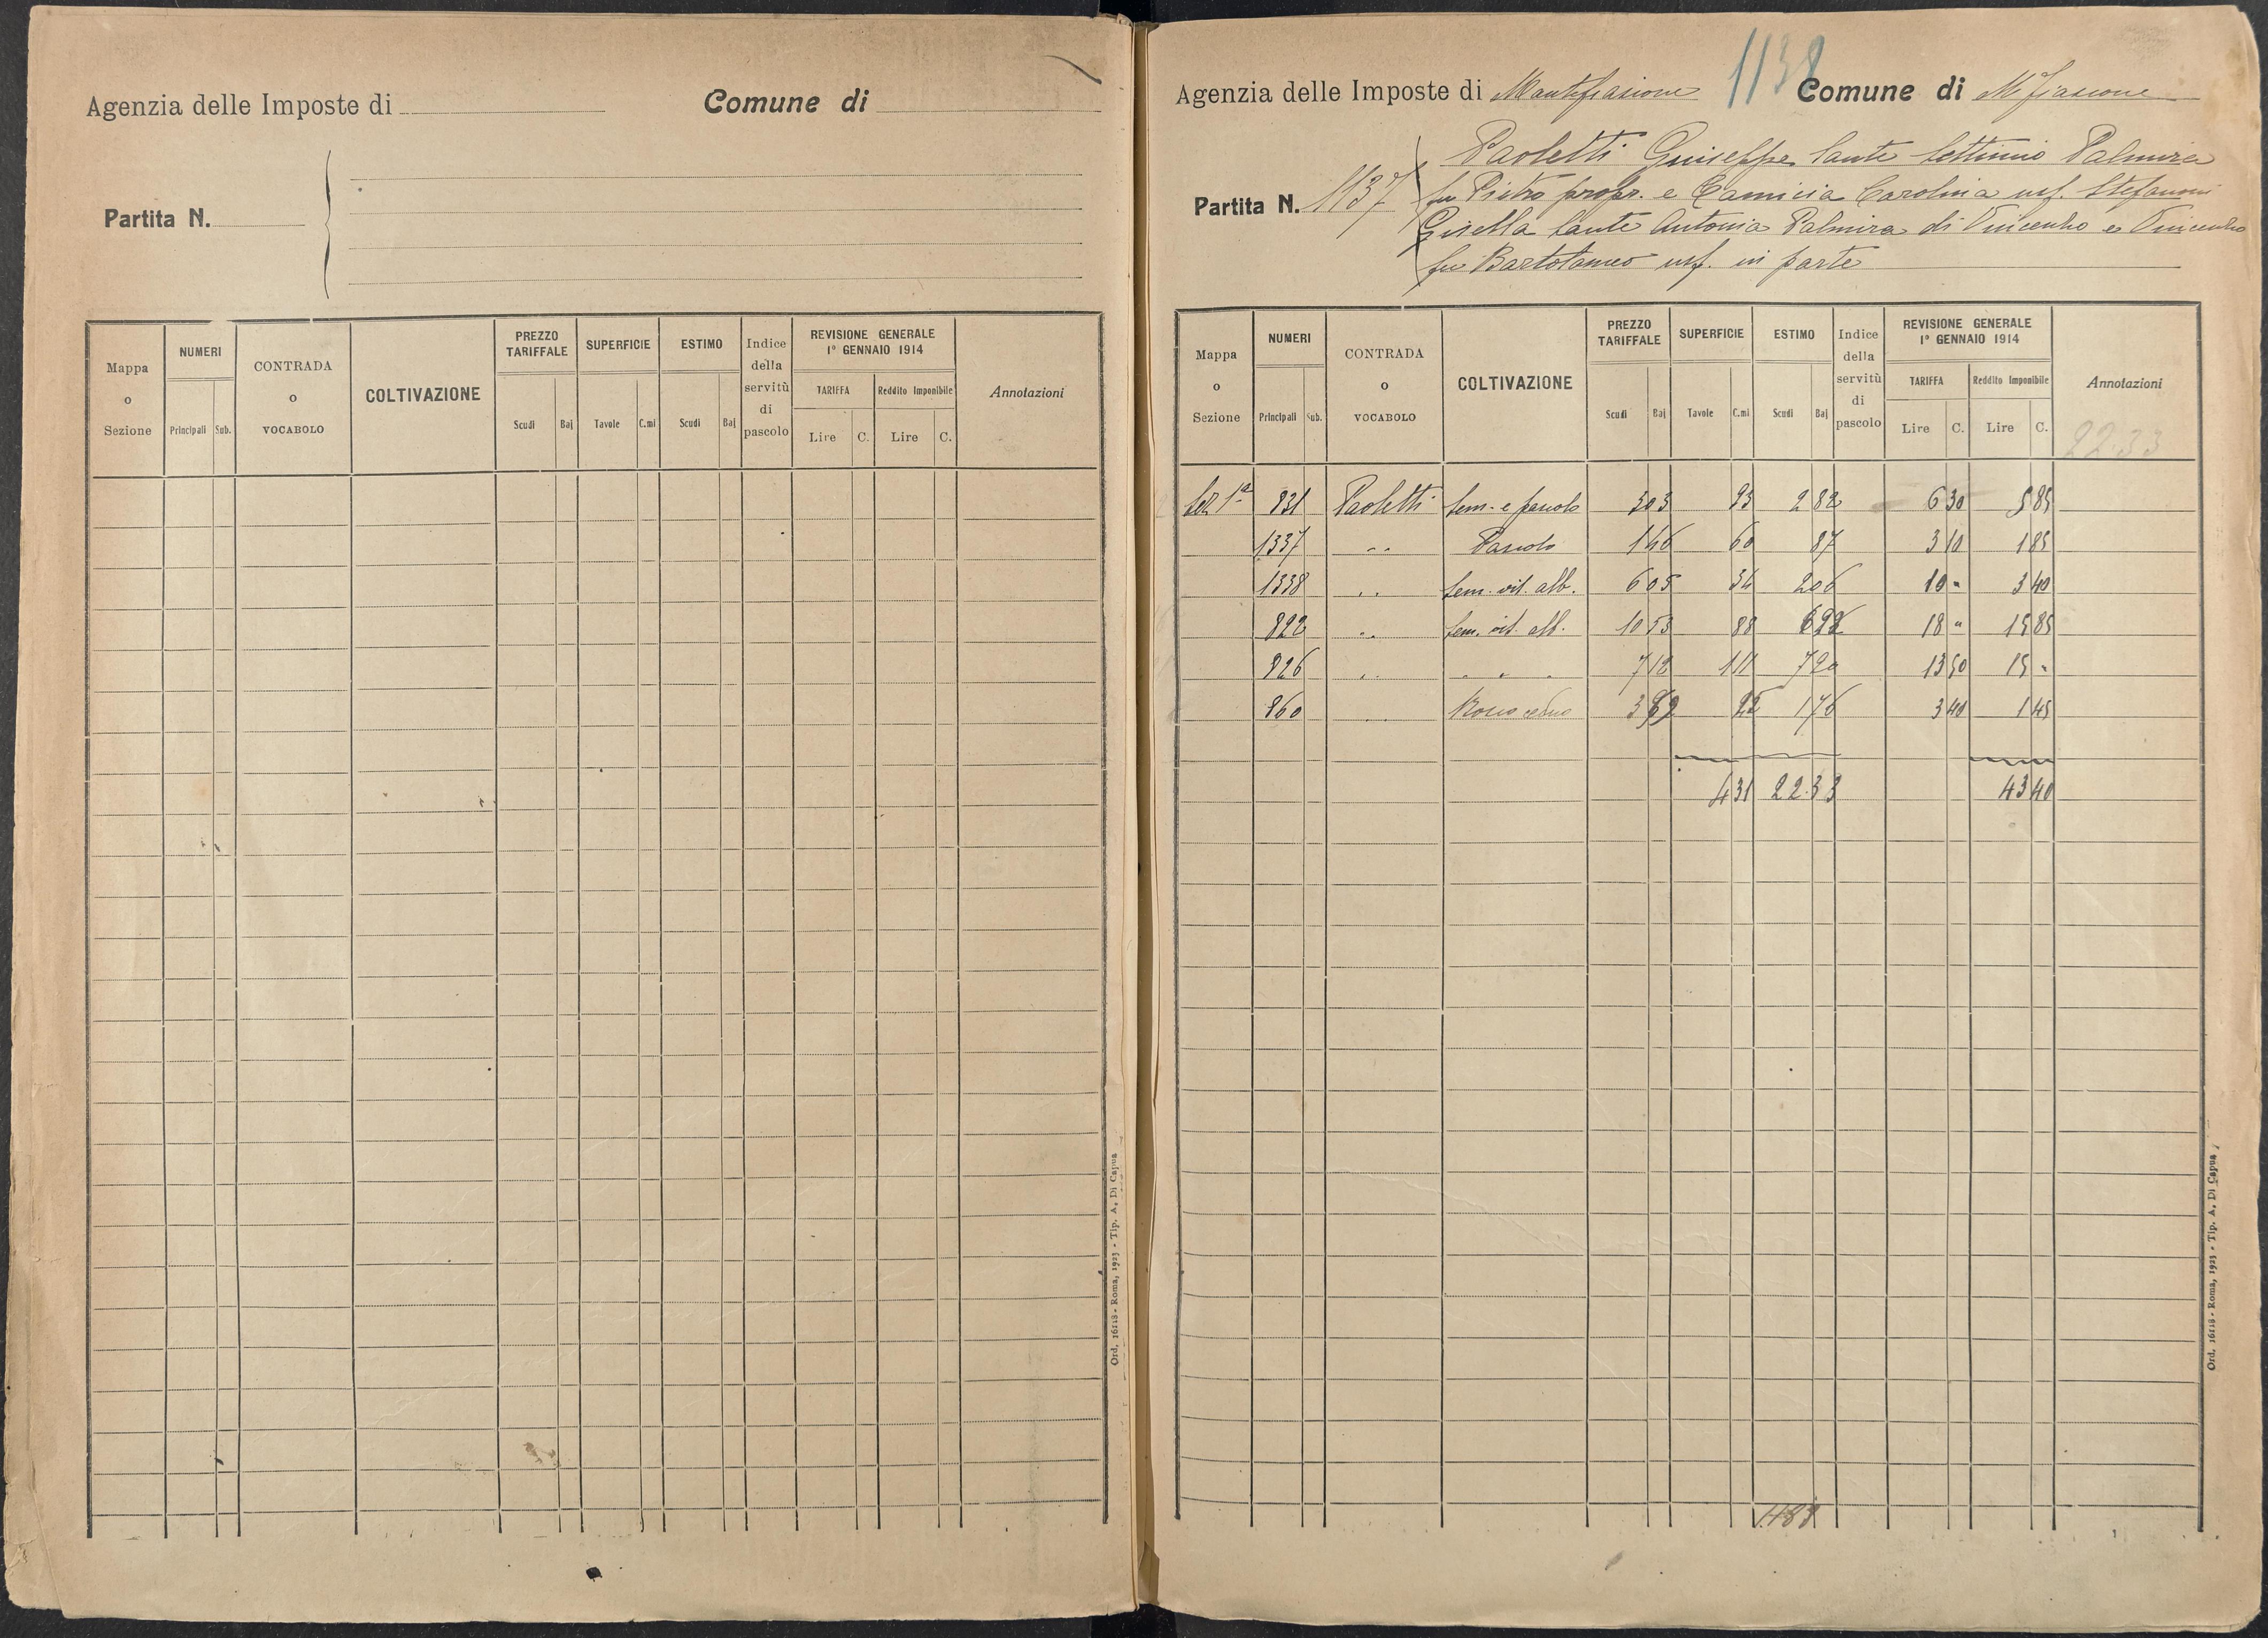 Agenzia delle Imposte di
Comune di
Partita N.
Mappa o Sezione
NUMERI
Principali
Sub.
CONTRADA o VOCABOLO
COLTIVAZIONE
PREZZO TARIFFALE
Scudi
Baj
SUPERFICIE
Tavole
C.mi
ESTIMO
Scudi
Baj
Indice della servitù di pascolo
REVISIONE GENERALE
1° GENNAIO 1914
TARIFFA
Lire
C.
Reddito Imponibile
Lire
C.
Annotazioni
Ord. 16118 - Roma, 1923 - Tip. A. Di Capua
1138
Agenzia delle Imposte di Montefiascone
Comune di M.Fiascone
Partita N. 1137
Paoletti Giuseppe Sante Settimio Palmira
fu Pietro propr. e Camicia Carolina usf. Stefanoni
Gisella Sante Antonia Palmira di Vincenzo e Vincenzo
fu Bartolomeo usf. in parte
Mappa o Sezione
NUMERI
Principali
Sub.
CONTRADA o VOCABOLO
COLTIVAZIONE
PREZZO TARIFFALE
Scudi
Baj
SUPERFICIE
Tavole
C.mi
ESTIMO
Scudi
Baj
Indice della servitù di pascolo
REVISIONE GENERALE
1° GENNAIO 1914
TARIFFA
Lire
C.
Reddito Imponibile
Lire
C.
Annotazioni
22.33
Sez 1ª 831 Paoletti Sem. e pascolo 303 93 2 82 6 30 5 85
1337 " Pascolo 146 60 87 3 10 1 85
1338 " Sem. vit. alb. 605 34 206 10 " 3 40
822 " Sem. vit. alb. 10 53 88 18 " 15 85
826 " " " " 7 12 111 7 20 13 50 15 "
860 " Bosco ceduo 176 3 40 1 45
431 22.33 43 40
Ord. 16118 - Roma, 1923 - Tip. A. Di Capua